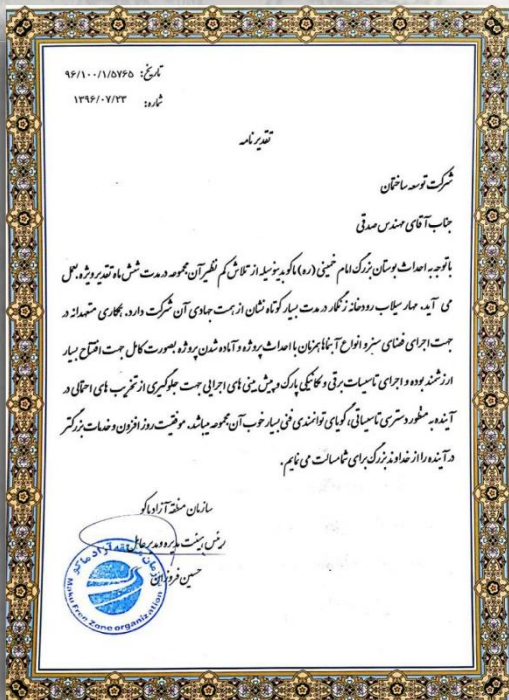 تاریخ: ۹۶/۱۰۰/۱/۵۷۶۵
شماره: ۱۳۹۶/۰۷/۲۳
تقدیر نامه
شرکت توسعه ساختمان
جناب آقای مهندس صدقی
باتوجه به احداث بوستان بزرگ امام خمینی (ره) ماکو بدینوسیله از تلاش کم نظیر آن مجموعه در مدت شش ماه تقدیر ویژه بعمل
می آید. مهار سیلاب رودخانه زنگمار در مدت بسیار کوتاه نشان از همت جهادی آن شرکت دارد. همکاری متعهدانه در
جهت اجرای فضای سبز و انواع آبنماها همزمان با احداث پروژه و آماده شدن پروژه بصورت کامل جهت افتتاح بسیار
ارزشمند بوده و اجرای تاسیسات برقی و مکانیکی پارک و پیش بینی های اجرایی جهت جلوگیری از تخریب های احتمالی در
آینده به منظور دسترسی تاسیساتی، گویای توانمندی فنی بسیار خوب آن مجموعه میباشد. موفقیت روز افزون و خدمات بزرگتر
در آینده را از خداوند بزرگ برای شما مسالت می نمایم.
سازمان منطقه آزاد ماکو
رئیس هیئت مدیره و مدیر عامل
حسین فروزان
سازمان منطقه آزاد ماکو
Maku Free Zone organization